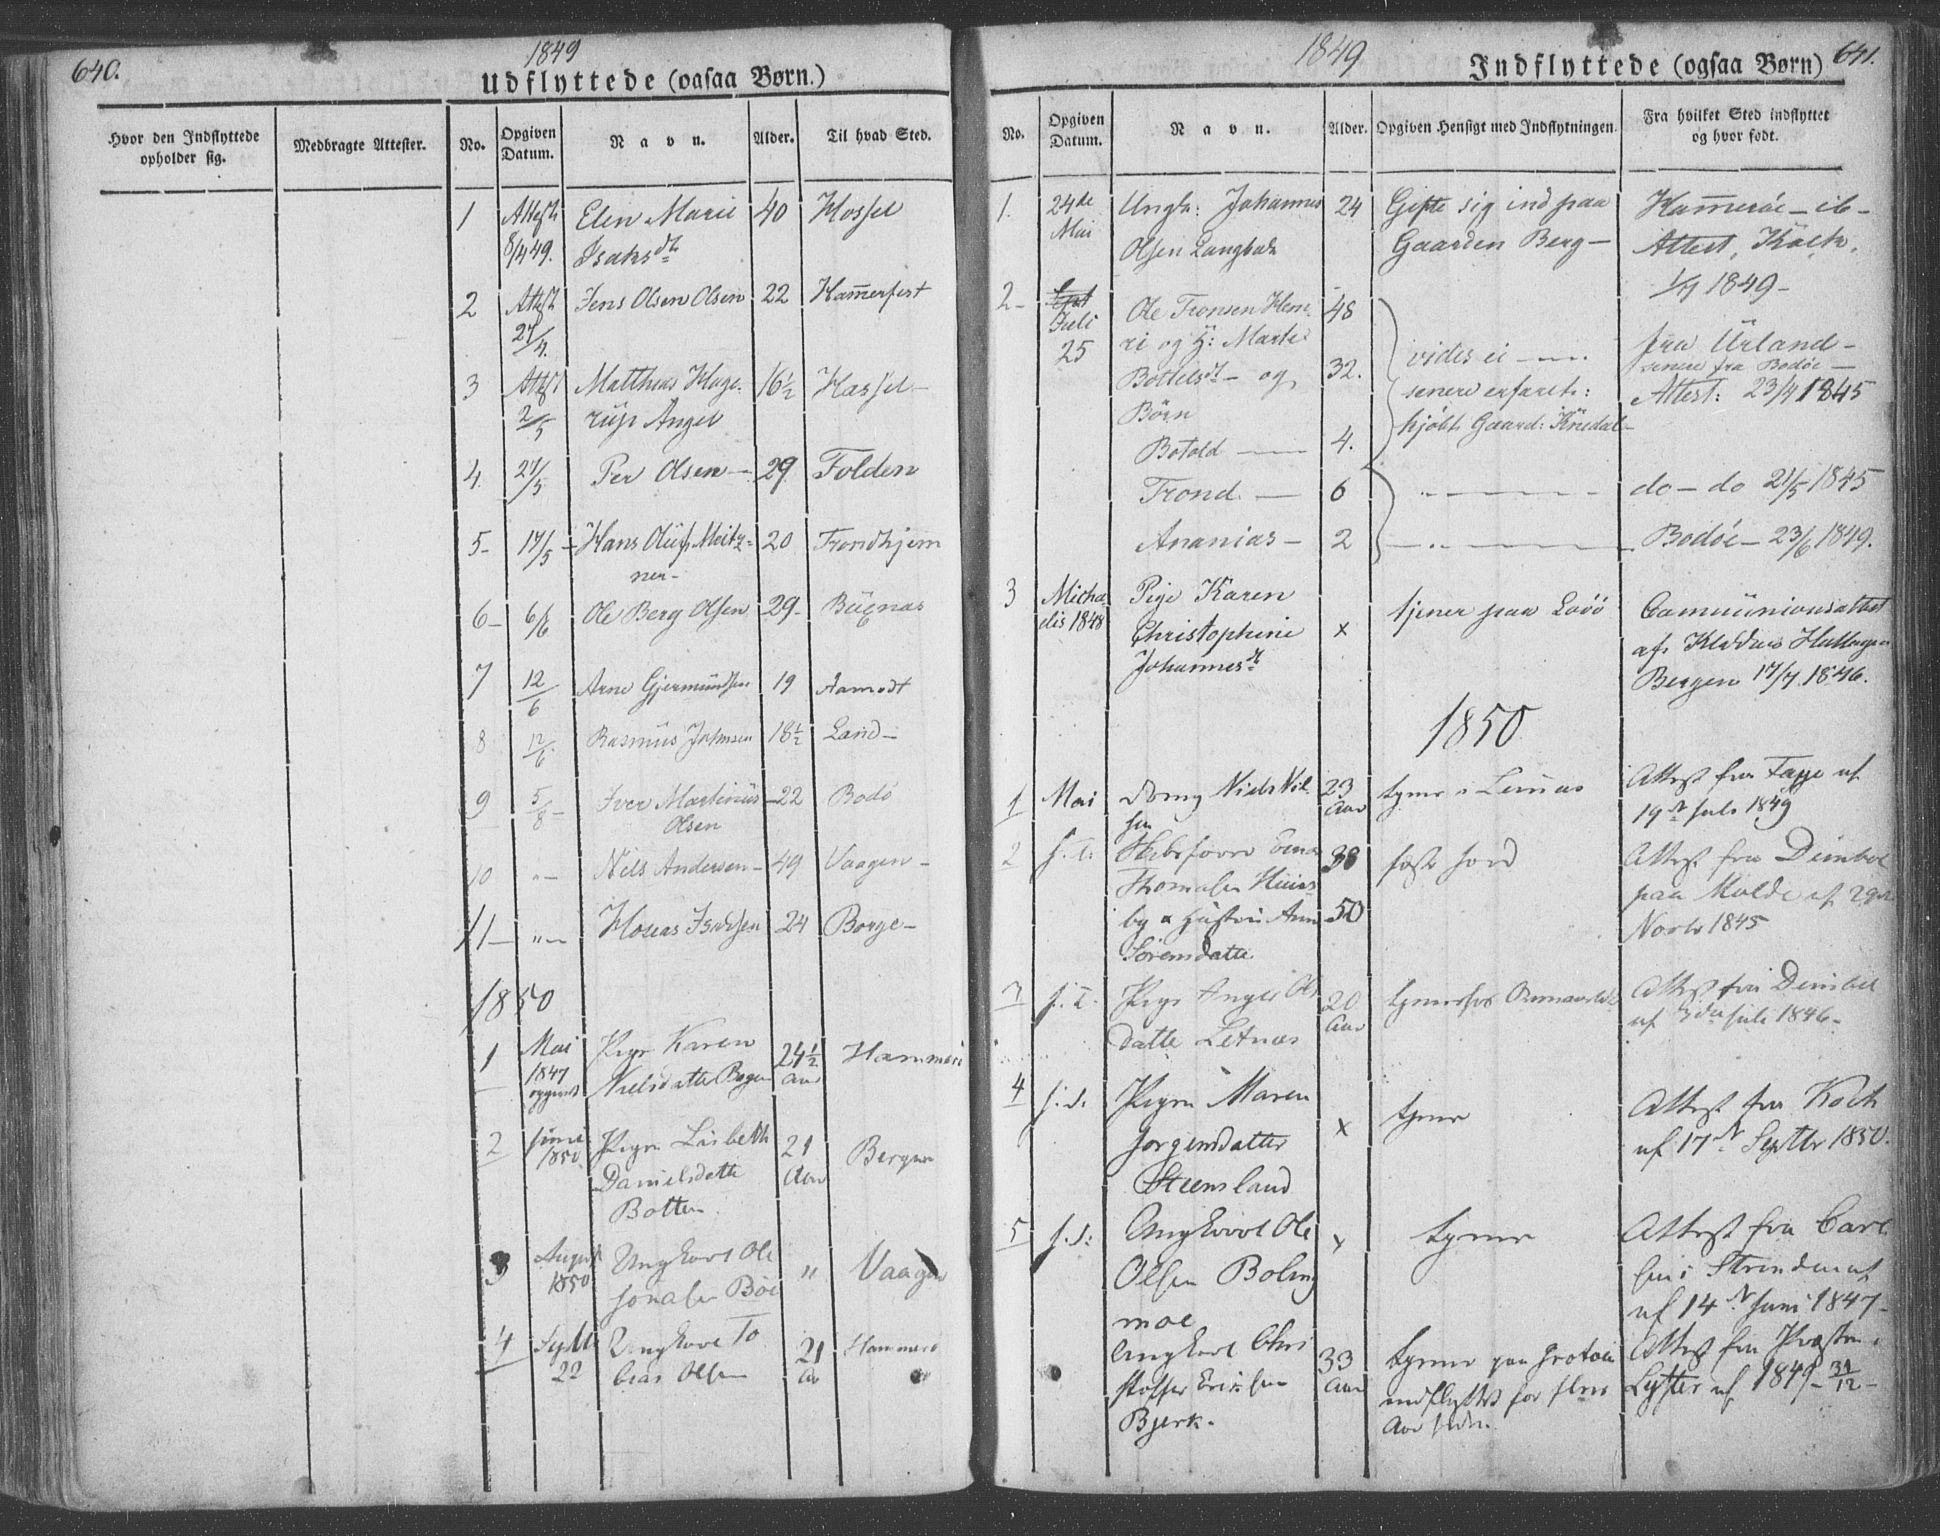 640.
1849
Udflyttede (ogsaa Børn.)
Hvor den Indflyttede opholder sig.
Medbragte Attester.
No.
Opgiven Datum.
Navn.
Alder.
Til hvad Sted.
1 Attest Elen Marie 40 Hossel
8/4 49. Isaksdt
2 Attest Jens Olsen Olsen 22 Hamerfest
27/4.
3 Attest Matthias Hage- 16½ Hassel-
2/5 rup Angel
4 27/5 Per Olsen- 29 Folden
5- 17/5 Hans Oluf Meitz- 20 Trondhjem
ner-
6- 6/6 Ole Berg Olsen 29- Buxnæs
7 12/6 Arne Gjermundsen 19 Aamodt
8 12/6 Rasmus Johnsen 18½ Land-
9 5/8- Iver Martinus 22 Bodö
Olsen
10 "- Nils Andersen- 49 Vaagen-
11- "- Hoseas Isaksen 24 Borge-
1850
1 Mai Pige Karen 24½ Hammerö
1847 Nielsdatter Bogen Aar
opgivet
2 Juni Pigen Lisbeth 21 Bergen
1850 Danielsdatter Aar
Botten
3 August Ungkarl Ole " Vaagen
1850 Jonasen Böe
4 Septb Ungkarl To 21 Hammerö
22 bias Olsen Aar
1849
Indflyttede (ogsaa Børn)
641.
No.
Opgiven Datum.
Navn.
Alder.
Opgiven Hensigt med Indflytningen.
Fra hvilket Sted indflyttet og hvor født.
1. 24de Ungk: Johannes 24 Gifte sig ind paa Hameröe-ib-
Mai Olsen Langbak Gaarden Berg- Attest, Kolk.
1849-
2- Juli Ole Tronsen Hem- 48
25 ri og H: Marthe vides ei - fra Urland-
Bottelsdt- og 32. senere erfaret: senere fra Bodöe-
Börn kjöbt Gaard: Attest: 23/4 1845
Botold - 4.
Trond - 6 " - do - do 21/5 1845
Ananias- 2 - " - Bodöe- 23/6 1849.
3 Micha- Pige Karen
elis 1848 Christophine x tjener paa Lovö Communionsattest
Johannesdt af
Bergen 17/7. 1846.
1850
1 Mai Niels Niel 23 tjener i Attest fra af
sen Aar 19de Juli 1849
2 s. D. 38 Jord Attest fra
Thomasen Huus- paa Molde af 29de
by & Hustru Anne 50 Novbr 1845
Sörensdatter
3 s. D. Pige Inger Ols 20 tjener hos Attest fra
datter Letnæs Aar af 3die Juli 1846-
4 s. D. Pigen Maren x tjener Attest fra Koch
Jörgensdatter af 17de Septbr 1850.
Steensland
5 s. D: Ungkarl Ole x tjener Attest fra Carl
Olsen Boling sen i Strinden af
moe af 14de Juni 1847-
Ungkarl Chri 33 tjener paa Grotöen Attest fra Præsten i
stoffer Eriksen Aar indflyttet for flere Lyster af 1849- 31/12-
Bjerk. Aar siden.